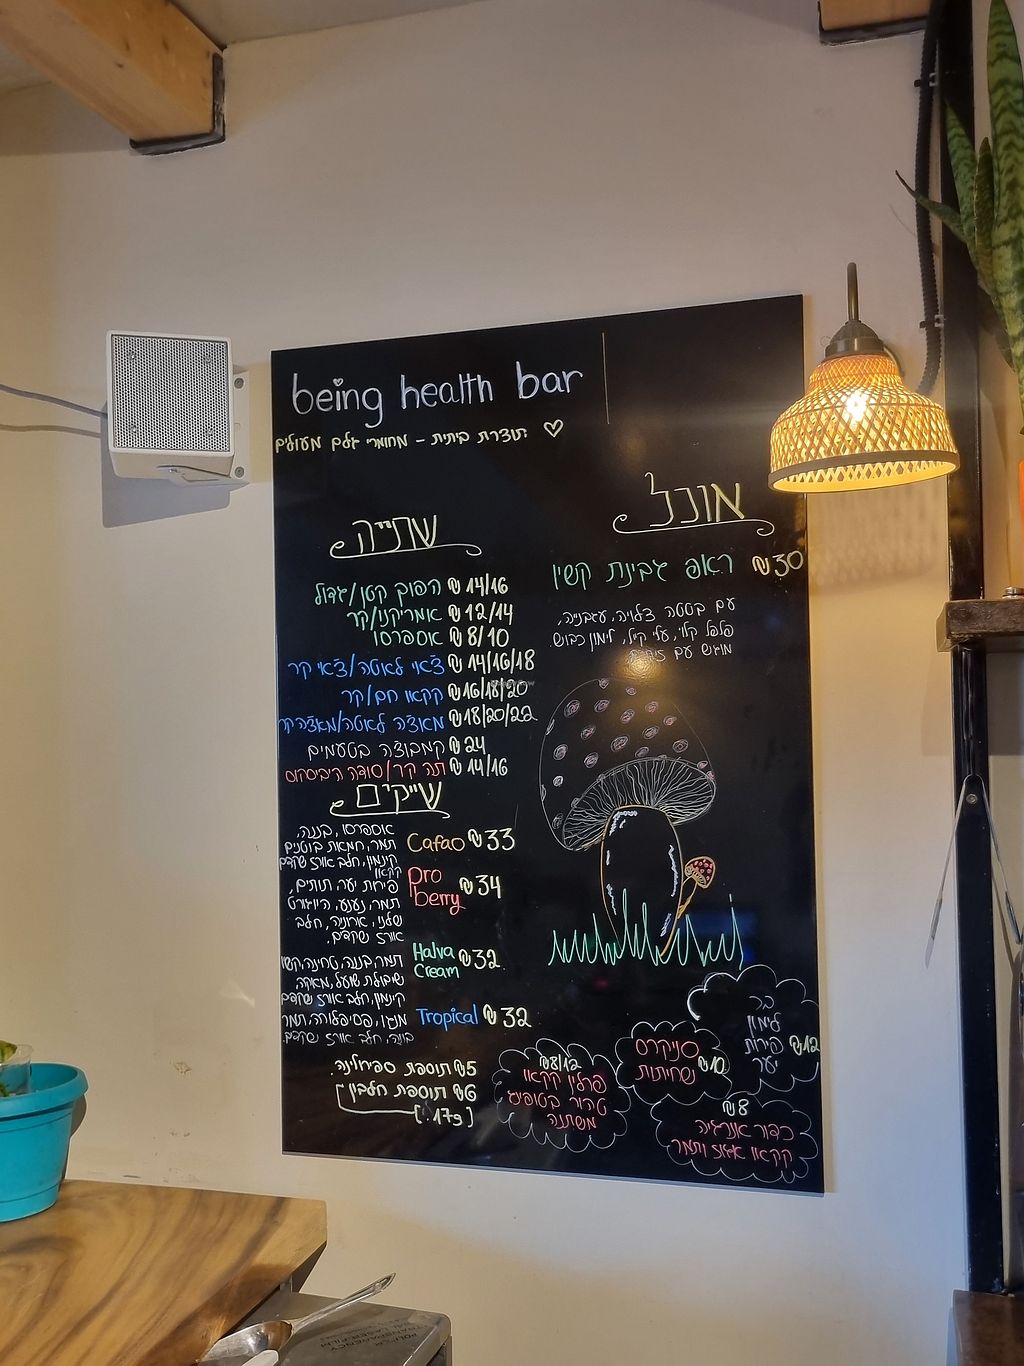 being health bar
תוצרת ביתית - מחומרי גלם מעולים ♡
שתייה
הפוך קטן/גדול ₪ 14/16
אמריקנו/קר ₪ 12/14
אספרסו ₪ 8/10
צ'אי לאטה/צ'אי קר ₪ 14/16/18
קקאו חם/קר ₪ 16/18/20
מאצ'ה לאטה/מאצ'ה קר ₪ 18/20/22
קמבוצ'ה בטעמים ₪ 24
תה קר/סודה היביסקוס ₪ 14/16
שייקים
Cafao ₪ 33
אספרסו, בננה,
תמר, חמאת בוטנים
קינמון, חלב אורז שקדים
קקאו
pro berry ₪ 34
פירות יער, תותים,
תמר, נענע, היוגורט
שלנו, ארוניה, חלב
אורז שקדים.
Halva Cream ₪ 32
תמר, בננה, טחינה, קשיו
שיבולת שועל, מאקה,
קינמון, חלב אורז שקדים
Tropical ₪ 32
מנגו, פסיפלורה, תמר
בננה, חלב אורז שקדים.
₪5 תוספת ספירולינה.
₪6 תוספת חלבון
[17g.]
אוכל
ראפ גבינת קשיו ₪ 30
עם בטטה צלויה, עגבנייה,
פלפל קלוי, עלי קייל, לימון כבוש.
מוגש עם
בר
לימון
פירות
יער
₪12
סניקרס
נשחיתות
₪10
₪8/12
פרלין קקאו
טהור בטופינג
משתנה
₪8
כדור אנרגיה
קקאו אגוז ותמר